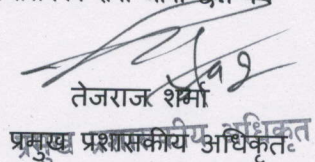 तेजराज शर्मा
प्रमुख प्रशासकीय अधिकृत